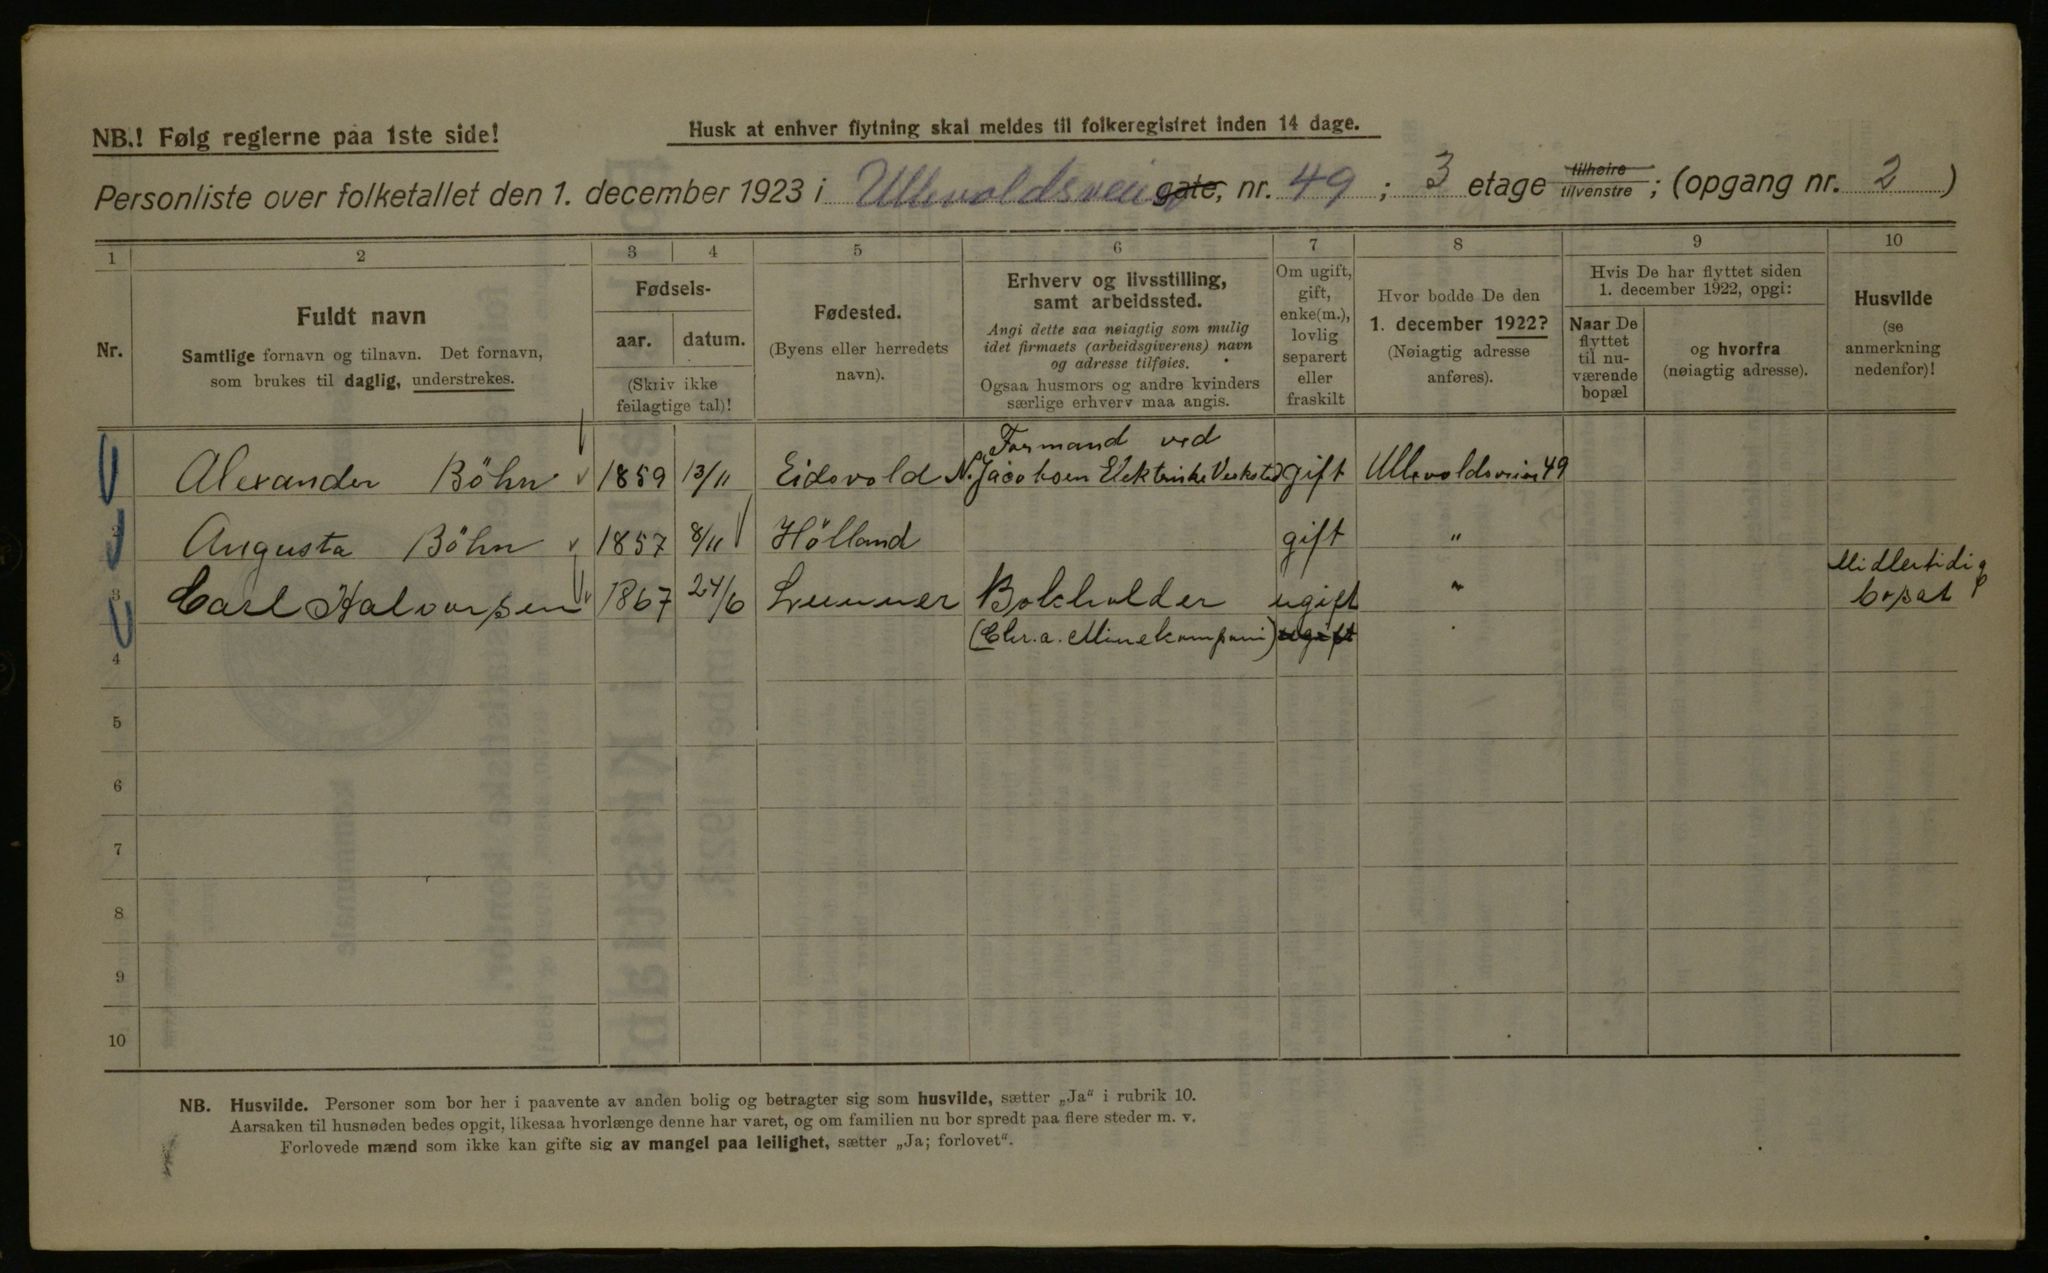 NB.! Følg reglerne paa 1ste side!
Husk at enhver flytning skal meldes til folkeregistret inden 14 dage.
Personliste over folketallet den 1. december 1923 i Ullevoldsveien gate, nr. 49 ; 3 etage tilhøire tilvenstre ; (opgang nr. 2 )
1 2 3 4 5 6 7 8 9 10
Nr.
Fuldt navn
Samtlige fornavn og tilnavn. Det fornavn,
som brukes til daglig, understrekes.
Fødsels-
aar. datum.
(Skriv ikke
feilagtige tal)!
Fødested.
(Byens eller herredets
navn).
Erhverv og livsstilling,
samt arbeidssted.
Angi dette saa nøiagtig som mulig
idet firmaets (arbeidsgiverens) navn
og adresse tilføies.
Ogsaa husmors og andre kvinders
særlige erhverv maa angis.
Om ugift,
gift,
enke(m.),
lovlig
separert
eller
fraskilt
Hvor bodde De den
1. december 1922?
(Nøiagtig adresse
anføres).
Hvis De har flyttet siden
1. december 1922, opgi:
Naar De
flyttet
til nu-
værende
bopæl
og hvorfra
(nøiagtig adresse).
Husvilde
(se
anmerkning
nedenfor)!
Formand ved
Alexander Böhn 1859 13/11 Eidsvold N. Jacobsen Elektriske Verksted gift Ullevoldsveien 49
2 Augusta Böhn 1857 8/11 Hölland gift "
Midlertidig
3 Carl Halvorsen 1867 24/6 Lunner Bokholder ugift " bopat
(Chr.a. Minekompani) ugift
4
5
6
7
8
9
10
NB. Husvilde. Personer som bor her i paavente av anden bolig og betragter sig som husvilde, sætter „Ja“ i rubrik 10.
Aarsaken til husnøden bedes opgit, likesaa hvorlænge denne har varet, og om familien nu bor spredt paa flere steder m. v.
Forlovede mænd som ikke kan gifte sig av mangel paa leilighet, sætter „Ja; forlovet“.